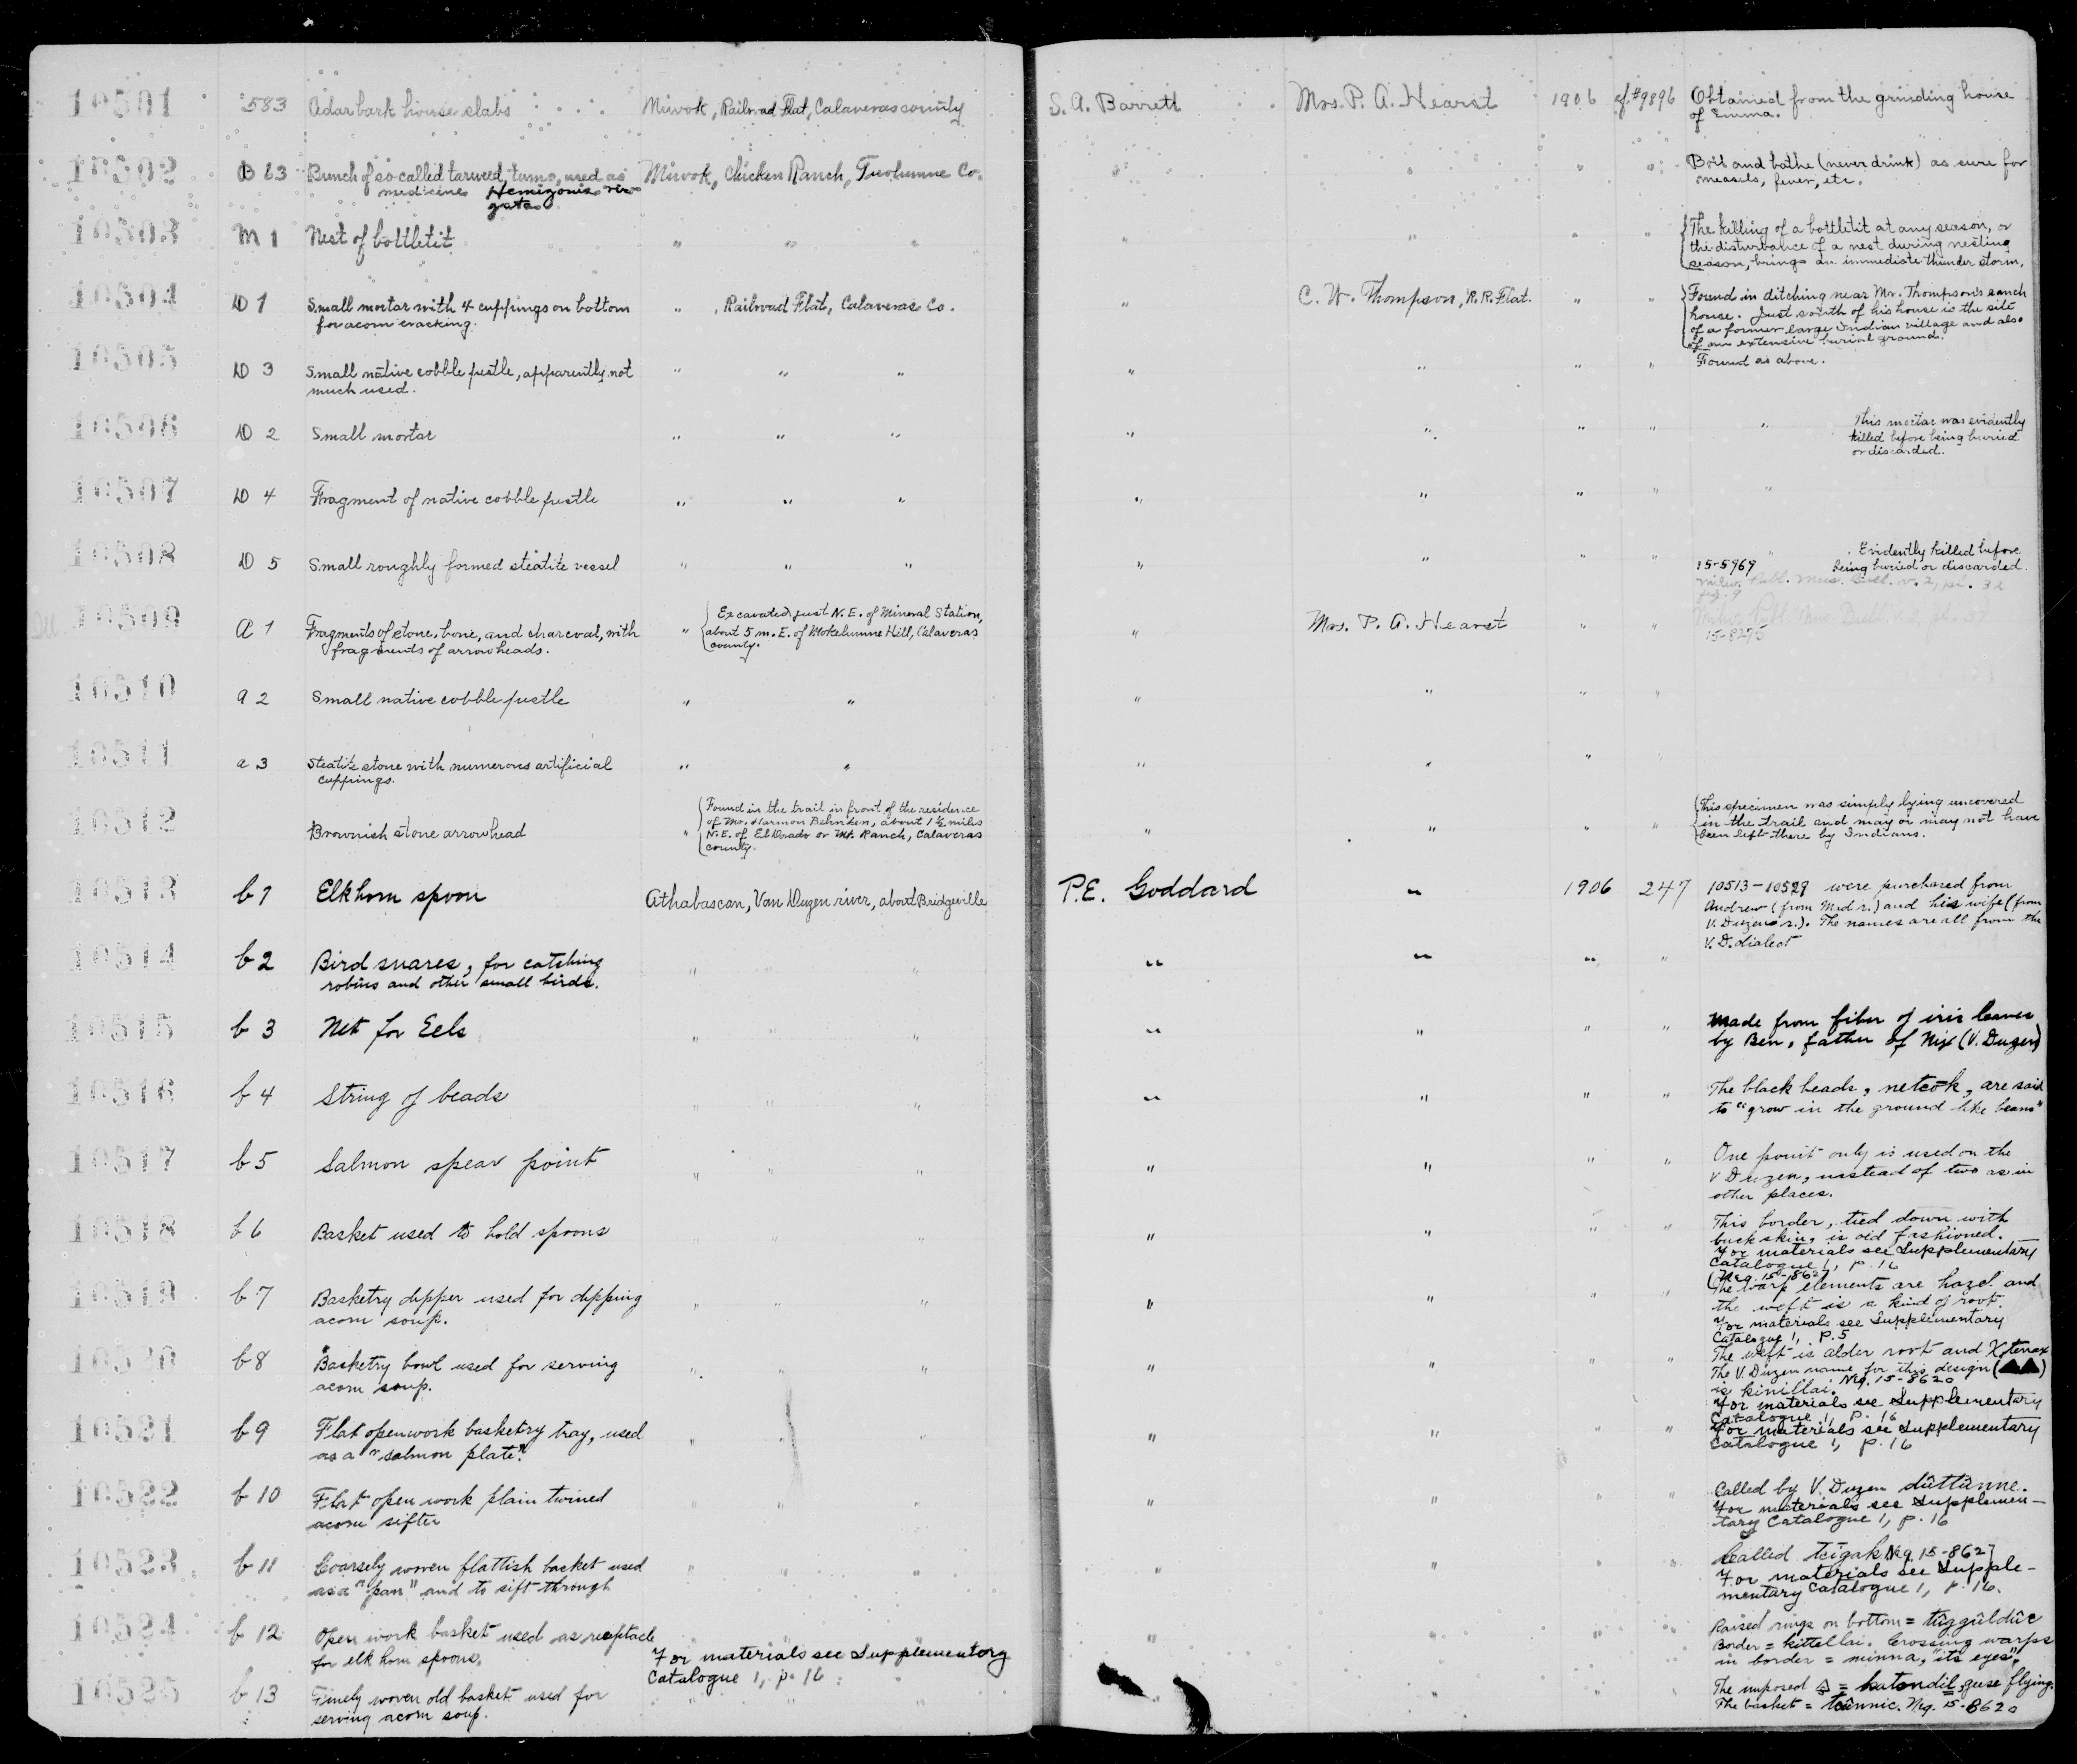 10501 583 Cedar bark house slabs Miwok, Railroad Flat, Calaveras county S. A. Barrett Mrs. P. A. Hearst 1906 cf. #9896 Obtained from the grinding house
of Emma.
10502 B 63 Bunch of so called tarweed, used as Miwok, Chicken Ranch, Tuolumne Co. " " " " Boil and bathe (never drink) as cure for
medicine Hemizonia vir- measels, fever, etc.
gata
10503 M 1 Nest of bottletit " " " " " " " The killing of a bottletit at any season, or
the disturbance of a nest during nesting
season, brings an immediate thunder storm.
10504 D 1 Small mortar with 4 cuppings on bottom " , Railroad Flat, Calaveras Co. " C. W. Thompson, R.R. Flat. " " Found in ditching near Mr. Thompson's ranch
for acorn cracking. house. Just south of his house is the site
of a former large Indian village and also
of an extensive burial ground.
10505 D 3 Small native cobble pestle, apparently not " " " " " " " Found as above.
much used.
10506 D 2 Small mortar " " " " " " " " This mortar was evidently
killed before being buried
or discarded.
10507 D 4 Fragment of native cobble pestle " " " " " " " "
10508 D 5 Small roughly formed steatite vessel " " " " " " " " Evidently killed before
15-5969 being buried or discarded.
Milw. Publ. Mus. Bull. v. 2, pl. 32
fig. 9
10509 A 1 Fragments of stone, bone, and charcoal, with " Excavated just N. E. of Mineral Station, " Mrs. P. A. Hearst " " Milw. Publ. Mus. Bull. v. 2, pl. 37
fragments of arrowheads. about 5 m. E. of Mokelumne Hill, Calaveras 15-8295
county.
10510 a 2 Small native cobble pestle " " " " " "
10511 a 3 Steatite stone with numerous artificial " " " " "
cuppings.
10512 Brownish stone arrowhead " Found in the trail in front of the residence " " " " This specimen was simply lying uncovered
of Mr. Harmon Behnken, about 1 ½ miles in the trail and may or may not have
N. E. of El Dorado or Mt. Ranch, Calaveras been left there by Indians.
county.
10513 b 1 Elkhorn spoon Athabascan, Van Duzen river, about Bridgeville P.E. Goddard " 1906 247 10513-10529 were purchased from
Andrew (from Mad r.) and his wife (from
V. Duzen r.). The names are all from the
V. D. dialect
10514 b 2 Bird snares, for catching " " " " " " "
robins and other small birds.
10515 b 3 Net for Eels " " " " " " made from fiber of iris leaves
by Ben, father of Nix (V. Duzen)
10516 b 4 String of beads " " " " " " " The black beads, netcōk, are said
to "grow in the ground like beans"
10517 b 5 Salmon spear point " " " " " " " One point only is used on the
V Duzen, instead of two as in
other places.
10518 b 6 Basket used to hold spoons " " " " " " " This border, tied down with
buckskin, is old fashioned.
For materials see Supplementary
Catalogue 1, p. 16
(Neg. 15-8627
10519 b 7 Basketry dipper used for dipping " " " " " " " The warp elements are hazel and
acorn soup. the weft is a kind of root.
For materials see Supplementary
Catalogue 1, P. 5
10520 b 8 Basketry bowl used for serving " " " " " " " The weft is alder root and X. tenax
acorn soup. The V. Duzen name for this design (▲▲)
is kinillai. Neg. 15-8620
For materials see Supplementary
Catalogue 1, P. 16
10521 b 9 Flat openwork basketry tray, used " " " " " " " For materials see Supplementary
as a "salmon plate". Catalogue 1, p. 16
10522 b 10 Flat open work plain twined " " " " " " " Called by V. Duzen dûttânne.
acorn sifter For materials see Supplemen-
tary Catalogue 1, p. 16
10523 b 11 Coarsely woven flattish basket used " " " " " " " Called Neg. 15-8627
as a "pan" and to sift through For materials see Supple-
mentary Catalogue 1, p. 16.
10524 b 12 Open work basket used as receptacle " " " " " " Raised rings on bottom = tûggûldûc
for elk horn spoons. For materials see Supplementary Border = kittellai. Crossing warps
Catalogue 1, p. 16 in border = minna, "its eyes".
10525 b 13 Finely woven old basket used for " " " " " " " The imposed = katondil, geese flying.
serving acorn soup. The basket = Neg. 15-8620